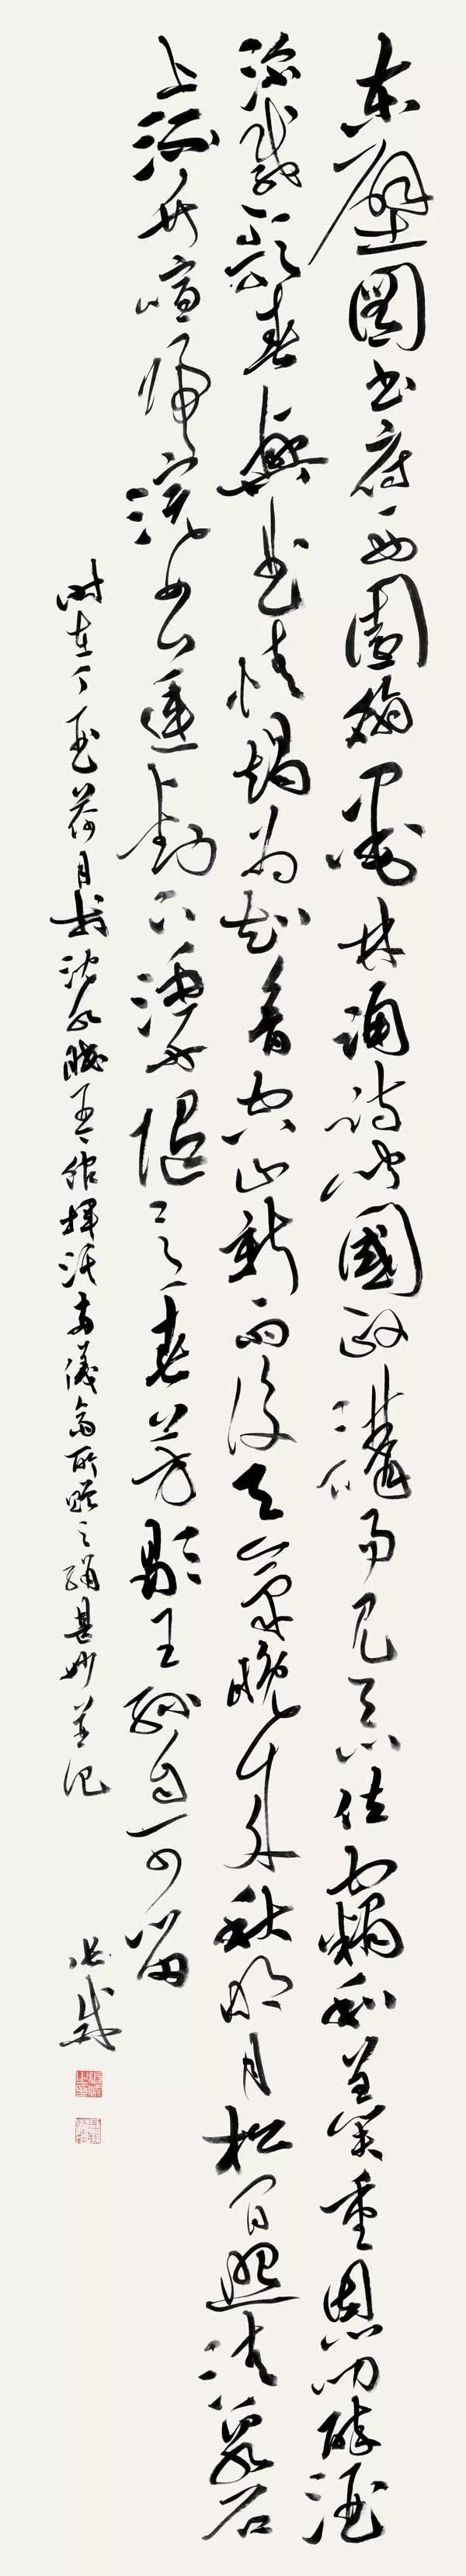 東壁圖書府西園翰墨林誦詩聞國政講易見天心位竊和羹重恩叨醉酒
深載歌春興曲情竭為知音空山新雨後天氣晚來秋明月松間照清泉石
上流竹喧歸浣女蓮動下漁舟隨意春芳歇王孫自可留
時在丁酉荷月於沈水 館揮汗 儀齋所贈之 甚妙并記